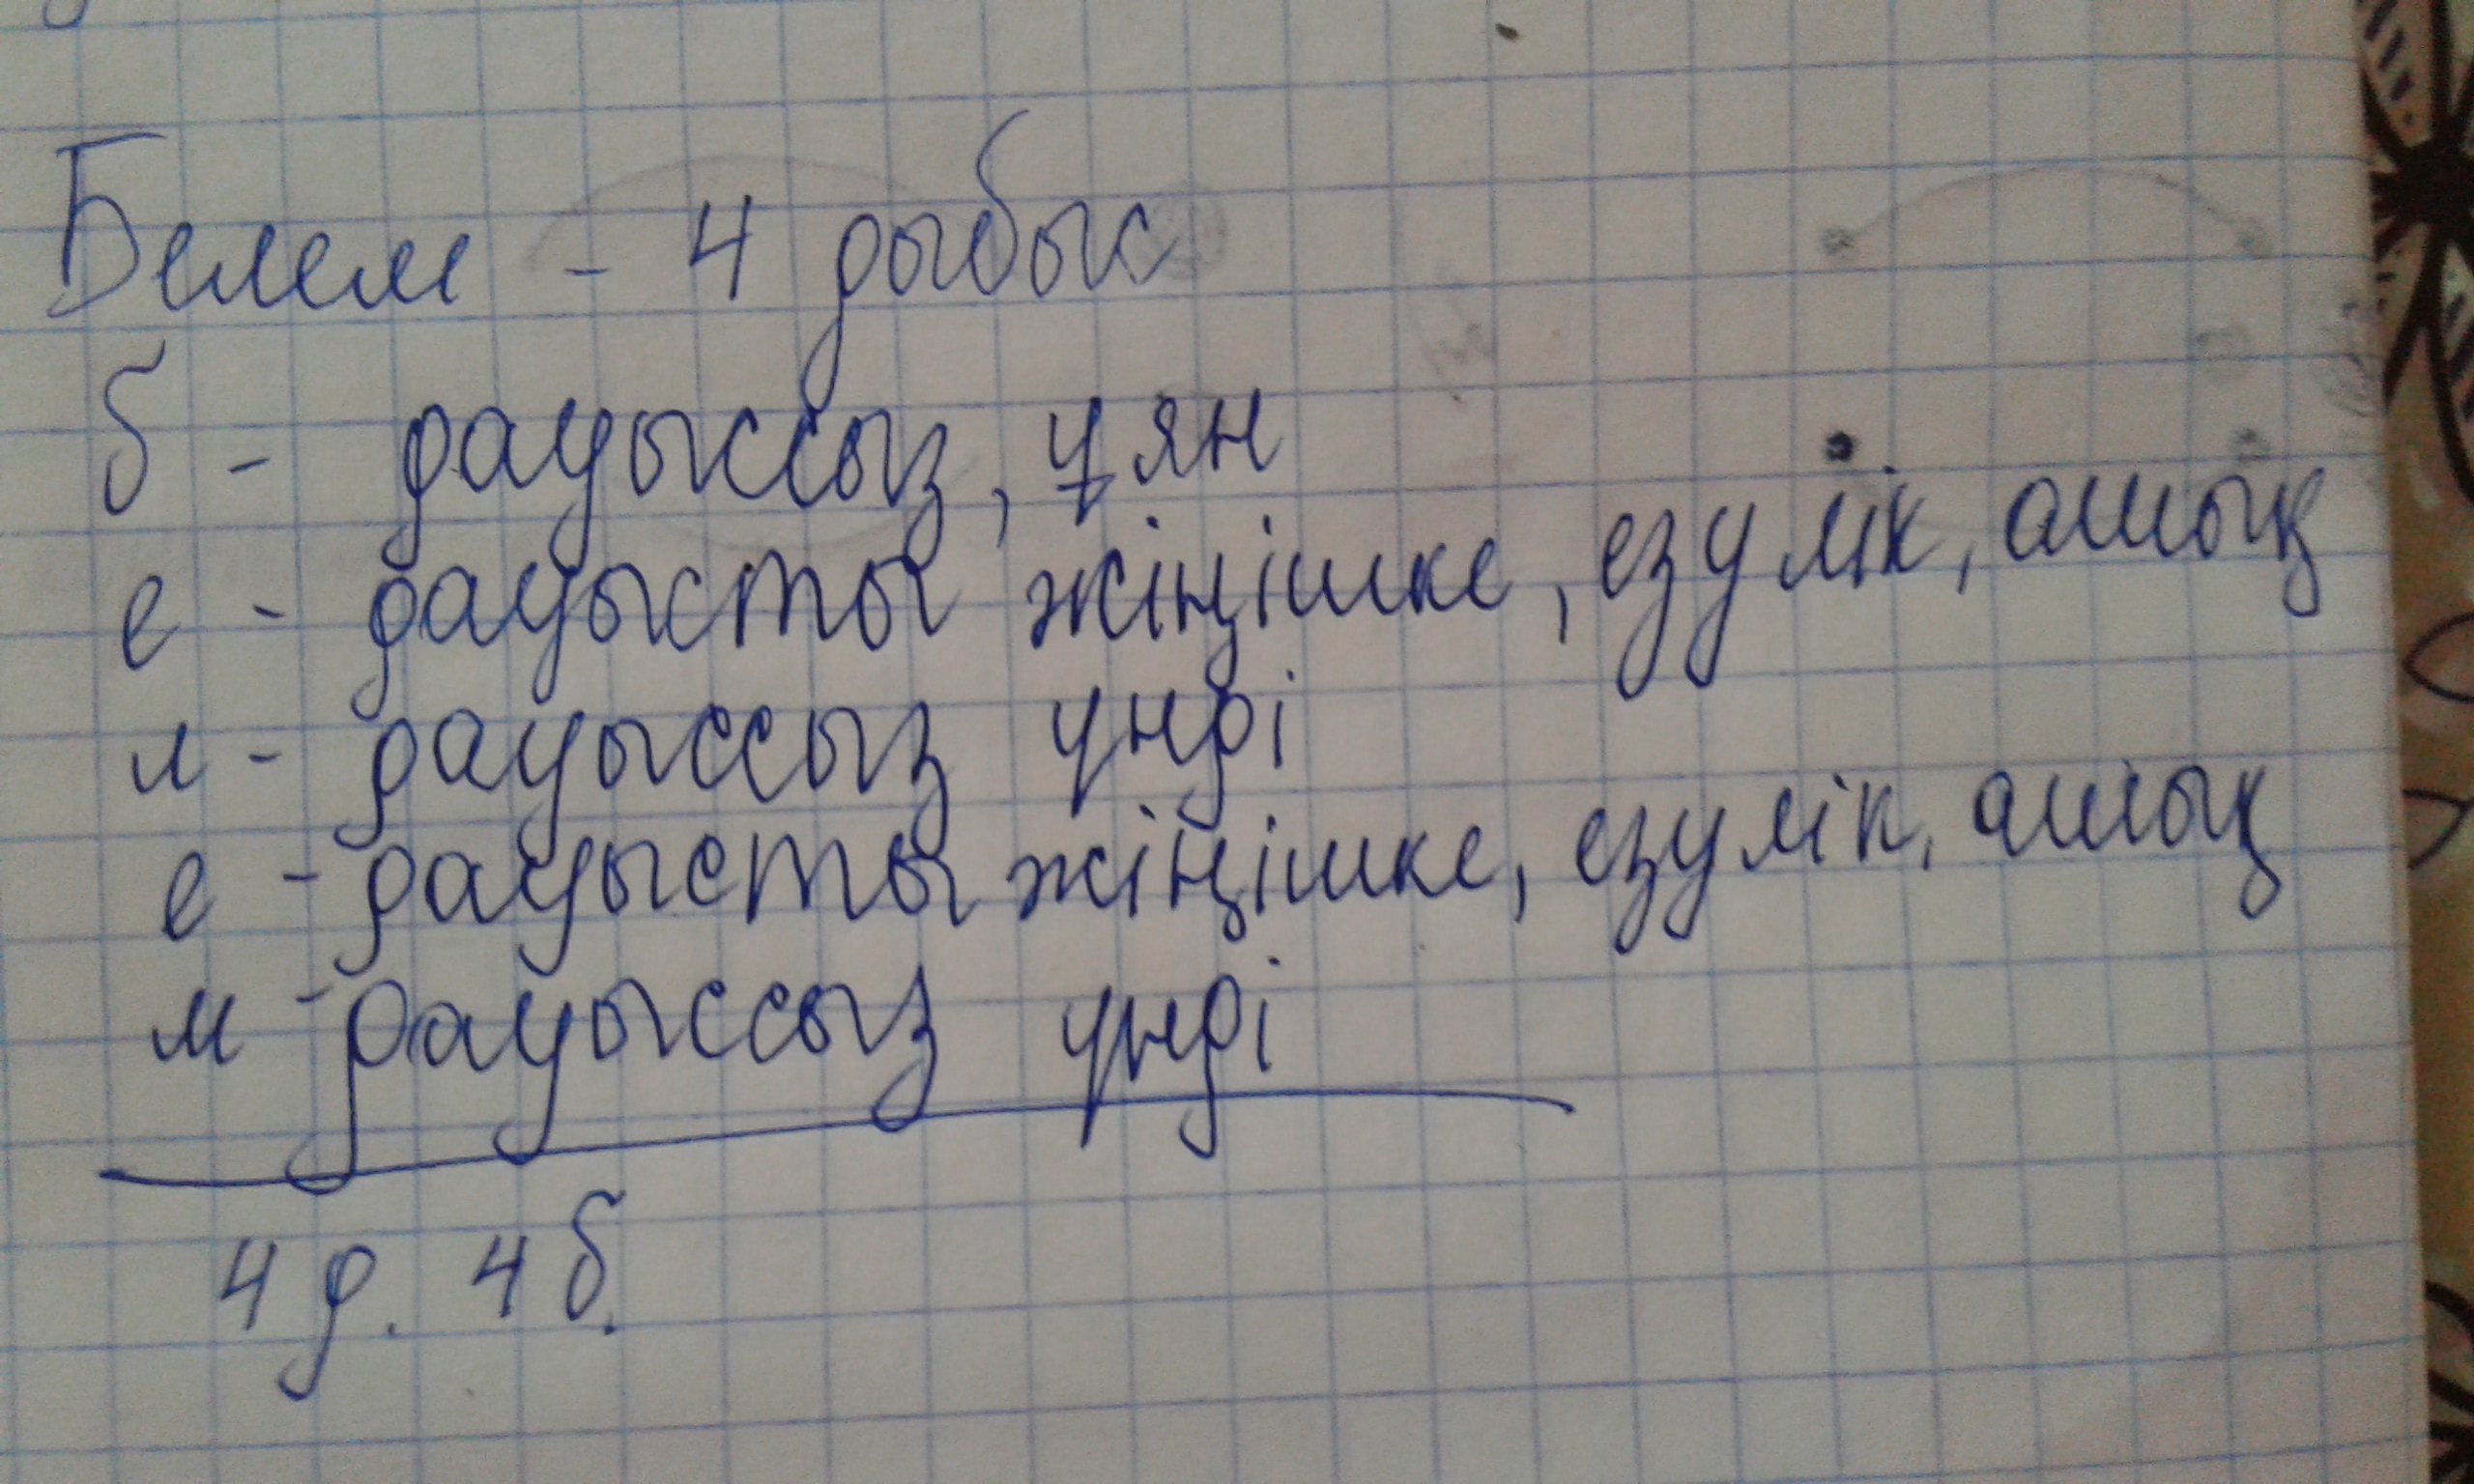 Белем - 4 дыбыс
б - дауыссыз, ұян
е - дауысты жіңішке, езулік, ашық
л - дауыссыз үнді
е - дауысты жіңішке, езулік, ашық
м - дауыссыз үнді
4 д. 4 б.